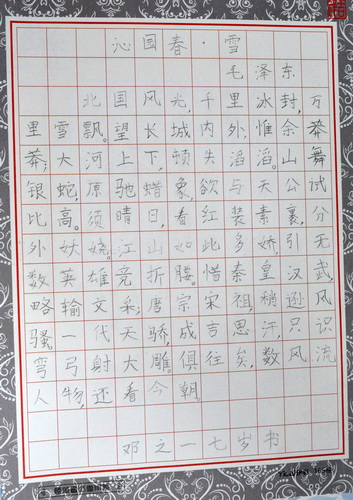 沁园春·雪
毛泽东
北国风光,千里冰封,万
里雪飘。望长城内外,惟余莽
莽;大河上下,顿失滔滔。山舞
银蛇,原驰蜡象,欲与天公试
比高。须晴日,看红装素裹,分
外妖娆。江山如此多娇,引无
数英雄竞折腰。惜秦皇汉武
略输文采;唐宗宋祖,稍逊风
骚。一代天骄,成吉思汗,只识
弯弓射大雕。俱往矣,数风流
人物,还看今朝。
邓之一七岁书